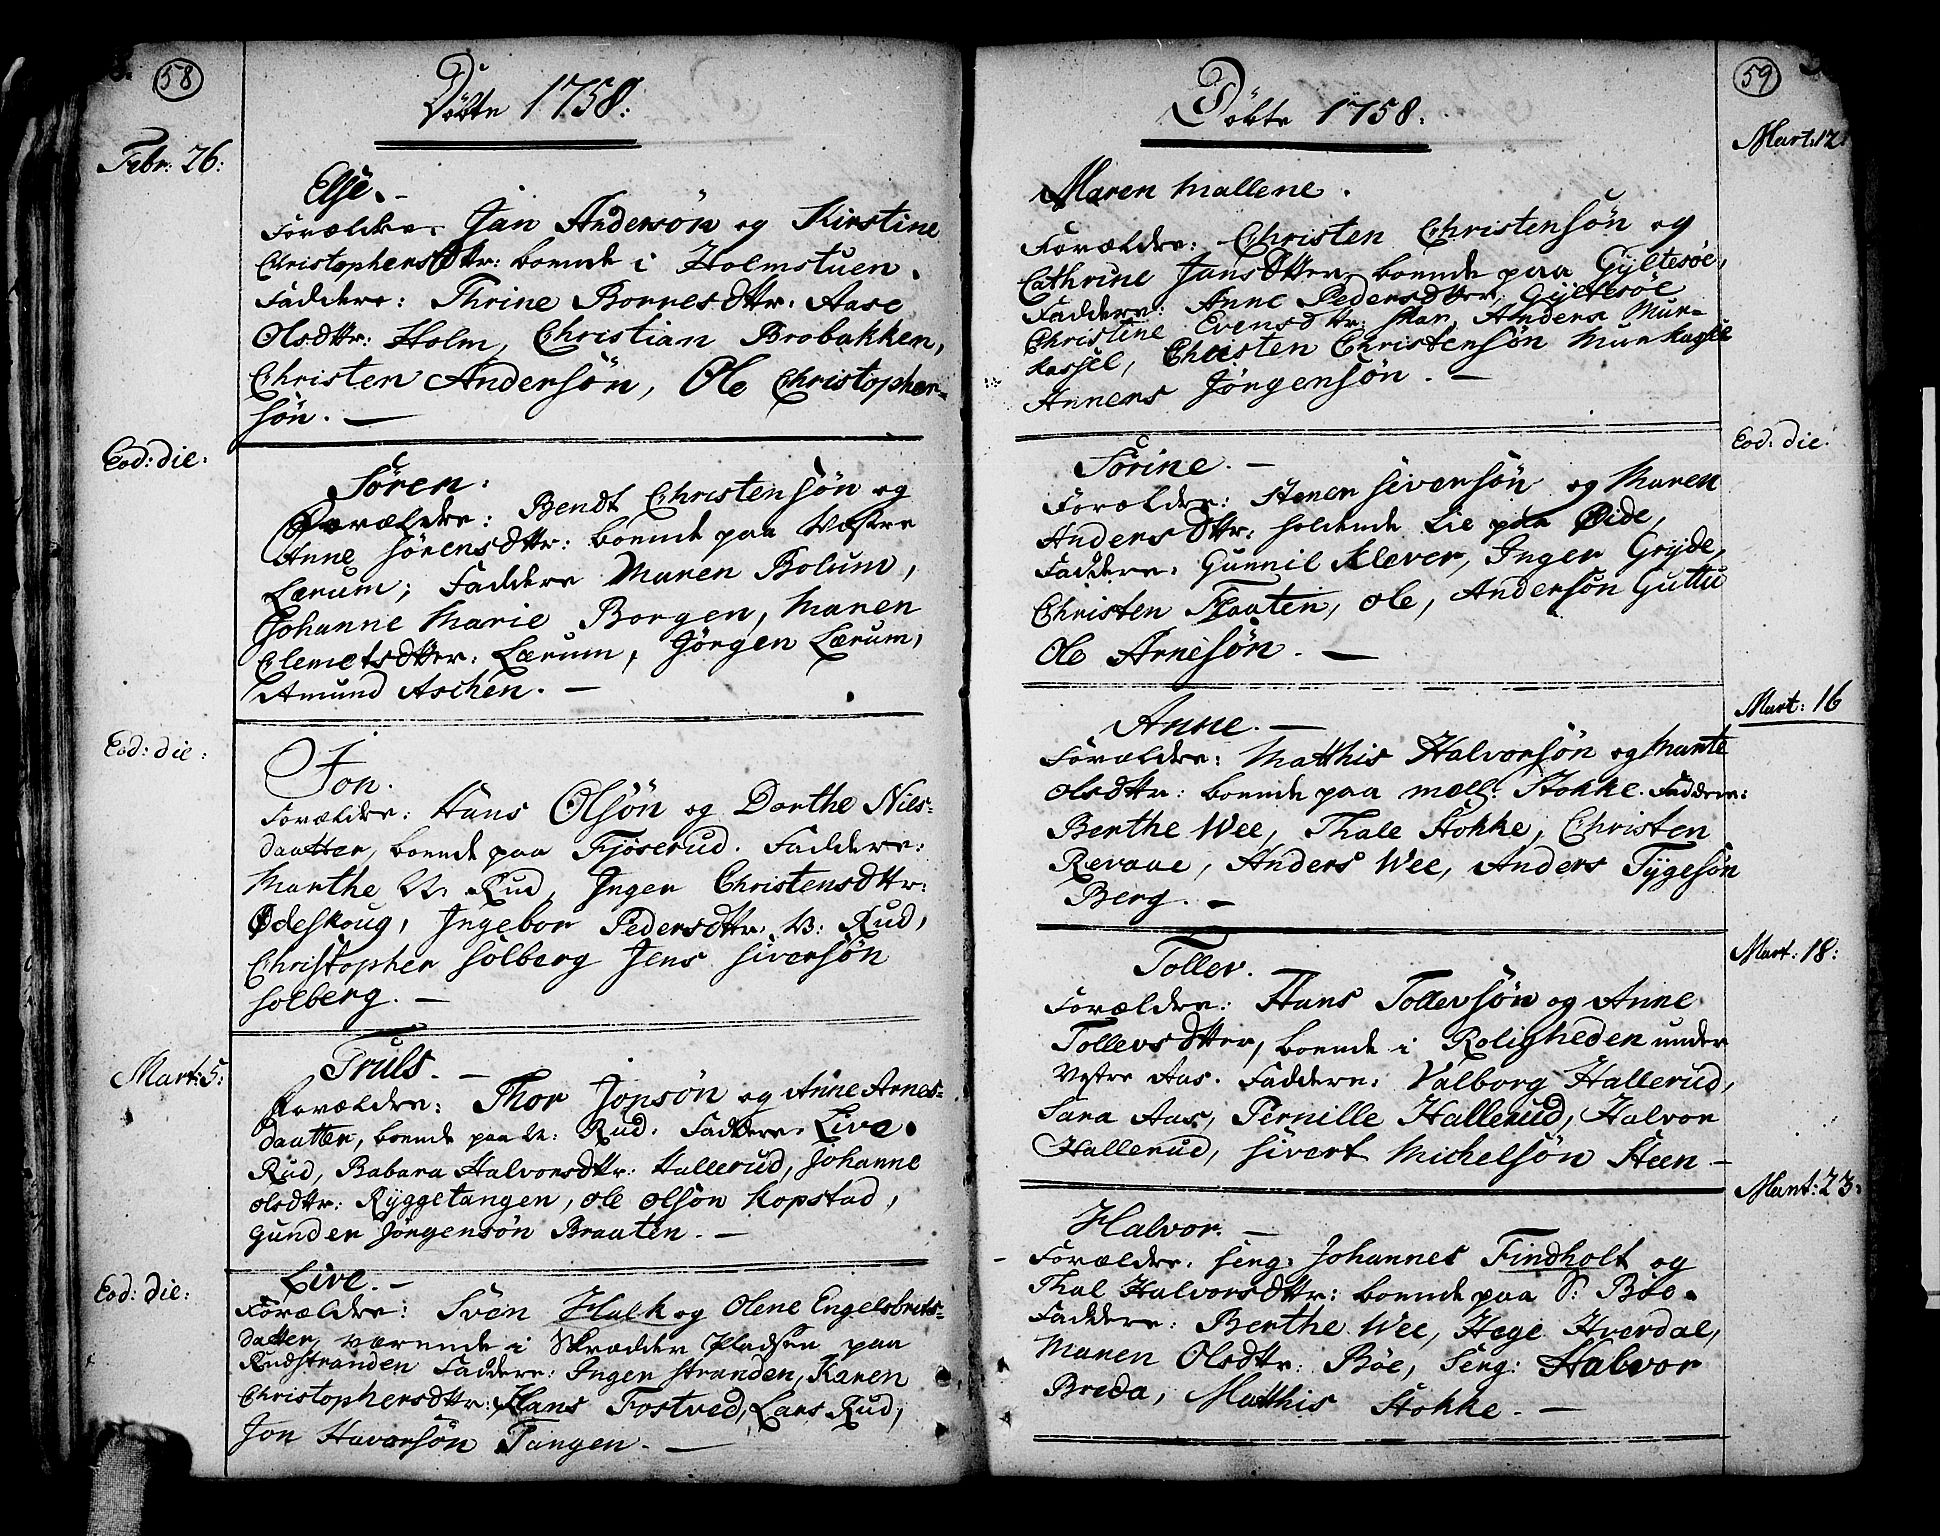 58
Döbte 1758:
Febr: 26:
Else.
Forældre Jan Andersön og Kirstine
Christophersdttr: boende i Holmstuen.
Faddere: Thrine Borresdttr: Aase
Olsdttr: Holm, Christian Brobakken,
Christen Andersön, Ole Christopher-
sön. —
Eod: die:
Sören:
Forældre: Bendt Christensön og
Anne Sörensdttr: boende paa Westre
Lærum; Faddere Maren Bolum,
Johanne Marie Borgen, Maren
Clemetsdtter: Lærum, Jörgen Lærum,
Amund Aschen. —
Eod: die:
Jon.
Forældre: Hans Olsön og Dorthe Nils-
daatter, boende paa Fjöserud. Faddere:
Marthe N. Rud, Inger Christensdttr:
Ødeskoug, Ingebor Pedersdttr: W: Rud,
Christopher Solberg Jens Siversön
Solberg. —
Mart: 5:
Truls. —
Forældre: Thor Jonsön og Anne Arnes-
daatter, boende paa N: Rud. Faddere: Live
Rud, Babara Halvorsdttr: Hallerud, Johanne
Olsdttr: Ryggetangen, Ole Olsön Kopstad,
Gunder Jörgensön Braaten. —
Eod: die:
Live. —
Forældre: Sven Halk og Olene Engelsbrets-
datter, værende i Skrædder Pladsen paa
Rudstranden Faddere: Inger Stranden, Karen
Christophersdttr: Hans Fostved, Lars Rud,
Jon Havorsön Tangen. —
59
Döbte 1758:
Mart: 12:
Maren Mallene.
Forældre: Christen Christensön og
Cathrine Jansdtter boende paa Gyltesöe,
Faddere: Anne Pedersdtter Gyltesöe
Christine Evensdttr: Skar, Anders Mur-
kassel, Christen Christensön
Annens Jörgensön. —
Eod: die:
Sörine. —
Forældre: Stener Siversön og Maren
Andersdttr: holdende Lie paa Øide,
Faddere: Gunnil Klever, Inger Gryde,
Christen Flaaten, Ole, Andersön Guttu
Ole Arnesön. —
Mart: 16
Anne. —
Forældre: Matthis Halvorsön og Marte
Olsdttr: boende paa mell: Stokke. Faddere:
Berthe Wee, Thale Stokke, Christen
Revaae, Anders Wee, Anders Tygesön
Berg. —
Mart: 18:
Tollev. —
Forældre: Hans Tollevsön og Anne
Tollevsdtter, boende i Roligheden under
Vestre Aas. Faddere: Valborg Hallerud,
Sara Aas, Pernille Hallerud, Halvor
Hallerud, Sivert Michelsön Steen —
Mart: 23:
Halvor. —
Forældre: Serg: Johannes Findholt og
Thal Halvorsdttr: boende paa S: Böe.
Faddere: Berthe Wee, Hege Hverdal,
Maren Olsdttr: Böe, Serg: Halvor
Breda, Matthis Stokke. —